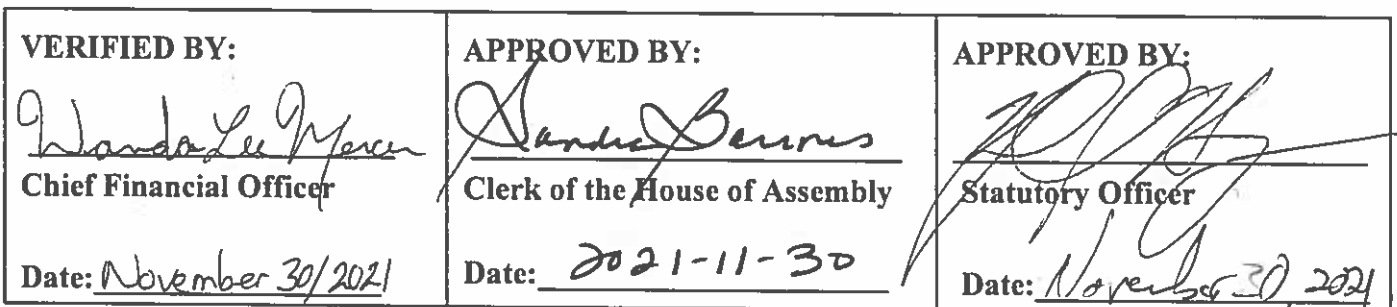 VERIFIED BY:
Wanda Lee Mercer
Chief Financial Officer
Date: November 30/2021
APPROVED BY:
Sandra Barnes
Clerk of the House of Assembly
Date: 2021-11-30
APPROVED BY:
Statutory Officer
Date: November 30, 2021